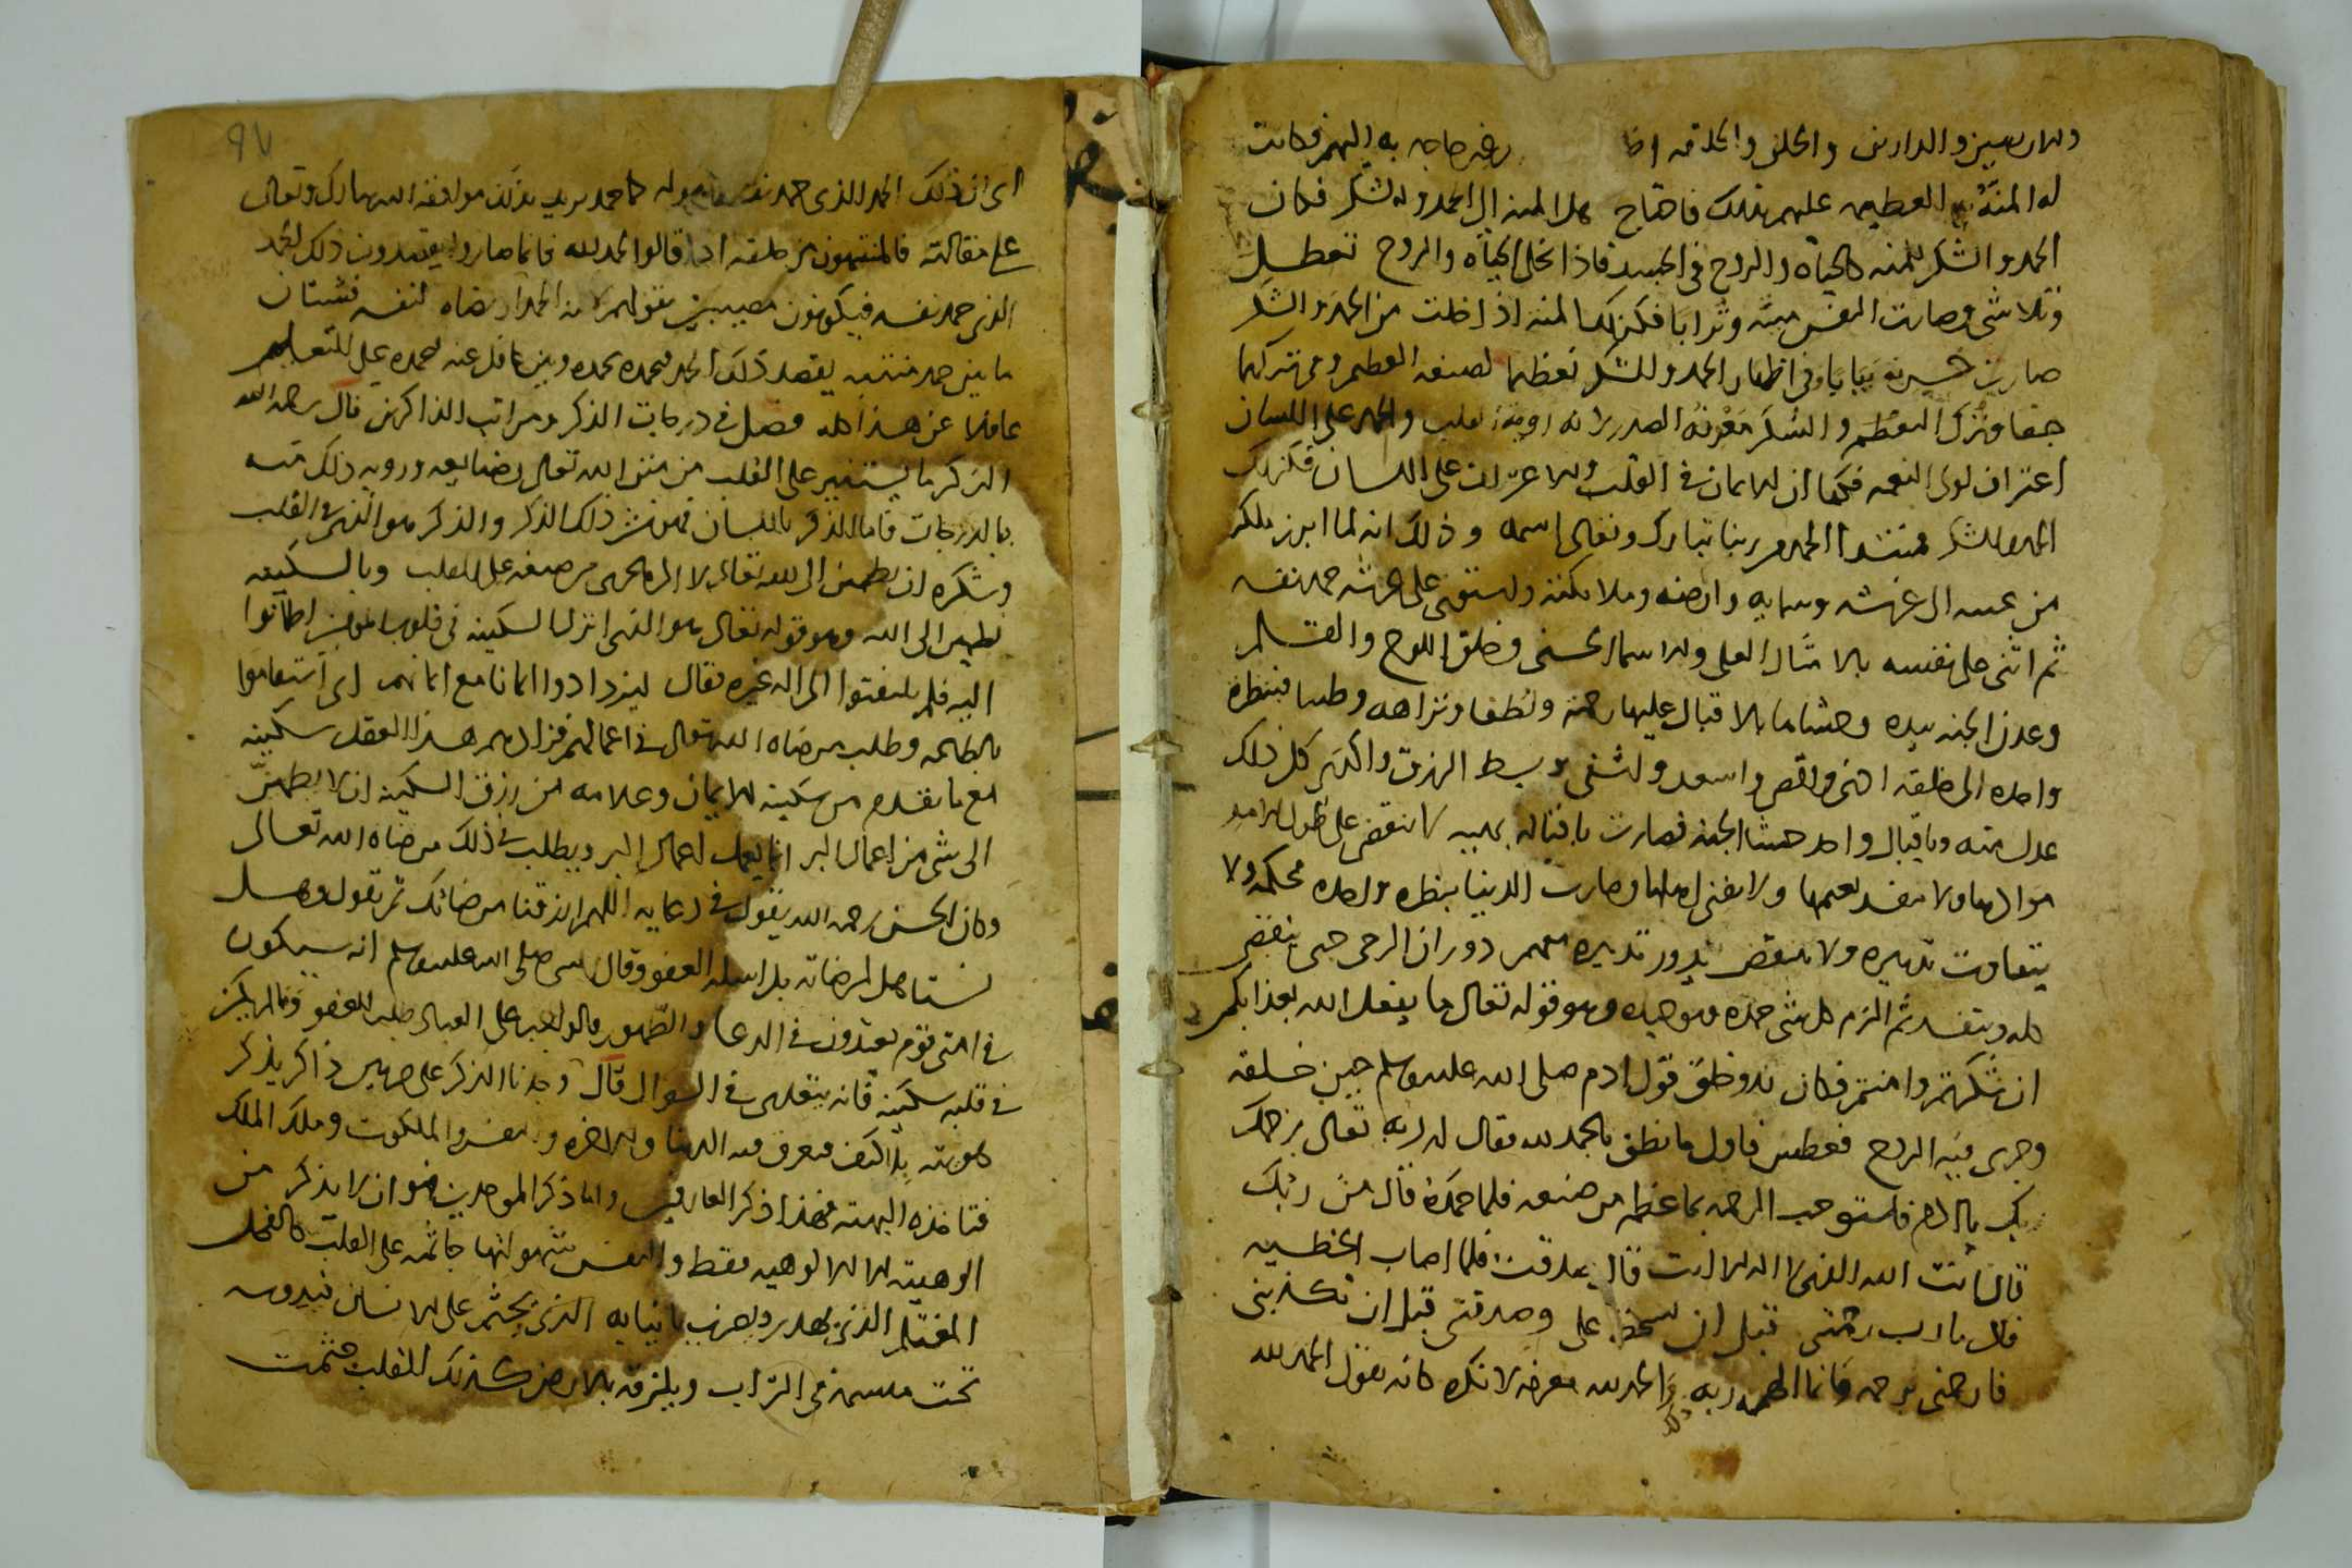 والارضين والدارين والخلق والخلقه اظهر حاجه به اليهم فكانت
له المنة العظيمه عليهم بذلك فاحتاج هذا المنه الى الحمد والشكر فكان
الحمد والشكر للمنه كالحياه والروح في الجسد فاذا تخلى الحياه والروح تعطل
وتلاشى وصارت النفس ميته وترابا فكذلك المنه اذا خلت من الحمد والشكر
صارت يبابا وفي اظهار الحمد والشكر تعظيما لصنعه العظيم وفي تركهما
جفا وترك التعظيم والشكر القلب والحمد على اللسان
اعتراف لولى النعمه فكما ان الايمان في القلب والاعتراف على اللسان فكذلك
الحمد والشكر فمبتدا الحمد من ربنا تبارك وتعالى اسمه وذلك انه لما ابرز ملكه
من غيبه الى عرشه وسمايه وارضه وملايكته واستوى على عرشه حمد نفسه
ثم اثنى على نفسه بالامثال العلى والاسماء الحسنى وخلق اللوح والقلم
وعدن الجنه بيده وحشاها بالاقبال عليها رحمة ولطفا ونزاهه وطيبا فبنظرة
واحده الى خلقه اغنى واقنى واسعد واشقى وبسط الرزق واكدى كل ذلك
عدل منه وباقبال واحد حشا الجنه فصارت باقباله لا تنقضى على طول الامد
موادها ولا ينفد نعيمها ولا يفنى اهلها وصارت الدنيا بنظره واحده محكمه ولا
يتفاوت تدبيره ولا ينتقض يدور تدبيره بهم دوران الرحى حتى ينقضى
كله وينفد ثم الزم كل شى حمده وتوحيده وهو قوله تعالى ما يفعل الله بعذابكم
ان شكرتم وامنتم فكان بدو خلق قول ادم صلى الله عليه وسلم حين خلقه
وجرى فيه الروح فعطس فاول ما نطق بالحمد لله فقال له ربه تعالى يرحمك
ربك يا ادم فاستوجب الرحمه بما عظم من صنعه فلما حمده قال من ربك
قال انت الله الذى لا اله الا انت قال صدقت فلما اصاب الخطيه
قال يارب رحمتنى قبل ان تسخط على وصدقتنى قبل ان تكذبنى
فارحمنى برحمه فانما الحمد لله معرفه لا نكره كانه يقول الحمد لله
٩٧
اى ان ذلك الحمد الذى حمد نفسه كما حمد يريد بذلك موافقة الله تبارك وتعالى
على مقالته فالمنتبهون من خلقه اذا قالوا الحمد لله فانما صاروا يقصدون ذلك الحمد
الذى حمد نفسه فيكونون مصيبين بقولهم لانه الحمد ارتضاه لنفسه فشتان
ما بين حمد منتبه يقصد ذلك الحمد فيحمده بحمده وبين غافل عنه يحمده على التعليم
غافلا عن هذا كله فصل في درجات الذكر ومراتب الذاكرين قال رحمه الله
الذكر ما يستنير على القلب من منن الله تعالى وصنايعه ورويه ذلك منه
بالدرجات فاما الذكر باللسان فهو نشر ذلك الذكر والذكر هو الذى في القلب
وشكره ان يطمئن الى الله تعالى لا الى ما يجرى من صنعه على القلب وبالسكينه
تطمين الى الله وهو قوله تعالى هو الذى انزل السكينه في قلوب المومنين اطمانوا
اليه فلم يلتفتوا الى اله غيره فقال ليزدادوا ايمانا مع ايمانهم اى استقاموا
بالطاعه وطلب مرضاه الله تعالى في اعمالهم فزادهم هذا العقد سكينه
مع ما تقدم من سكينه الايمان وعلامه من رزق السكينه ان لا يطمئن
الى شى من اعمال البر انما يعمل اعمال البر ويطلب في ذلك مرضاة الله تعالى
وكان الحسن رحمه الله يقول في دعايه اللهم ارزقنا مرضاتك ثم يقول وهل
نستاهل لمرضاته بل اسله العفو وقال النبى صلى الله عليه وسلم انه سيكون
في امتى قوم يعتدون في الدعا والطهور فالواجب على العباد طلب العفو فما لم يكن
في قلبه سكينه فانه يتعدى في السوال قال وجدنا الذكر على ضربين ذاكر يذكر
هويته بلا كيف فيعرف منه الدنيا والاخره والنفس والملكوت وملك الملك
فتاخذه البهته فهذا ذكر العارفين واما ذكر الموحدين فهو ان لا يذكر من
الوهيته الا الالوهيه فقط والنفس بشهواتها جاثمه على القلب كالفحل
المغتلم الذى يهدر ويضرب بانيابه الذى يجثم على الانسان فيدوسه
تحت منسمه في التراب ويلزقه بالارض كذلك القلب جثمت